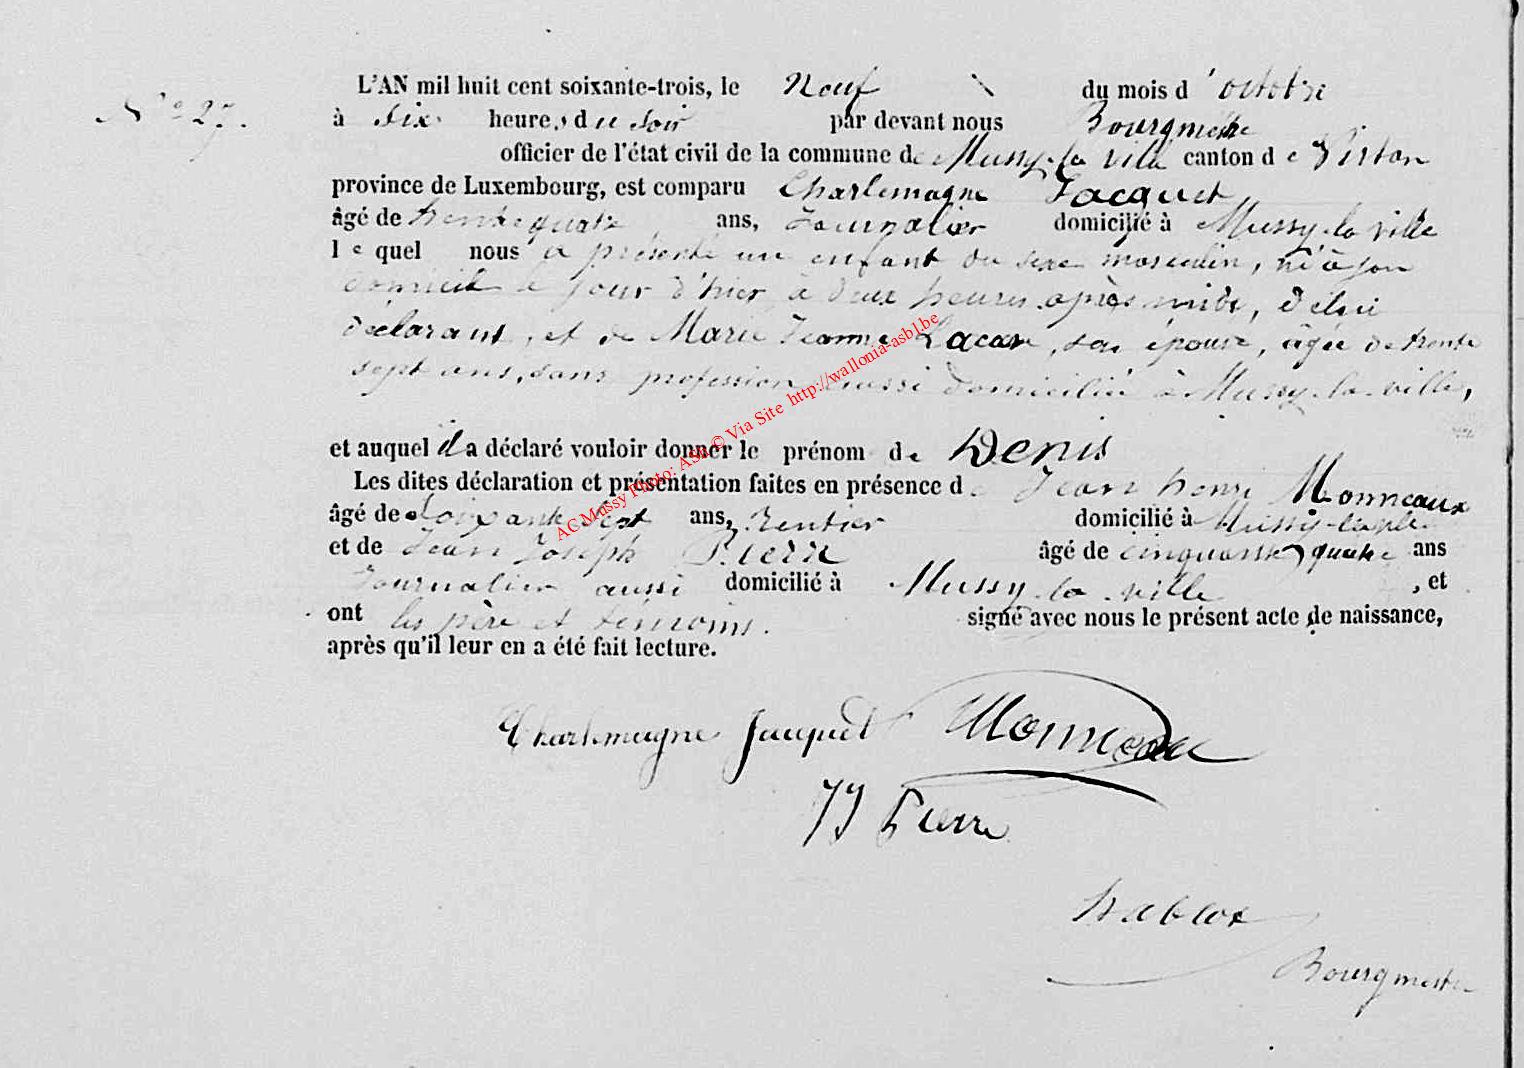 N° 27.
L'AN mil huit cent soixante-trois, le Neuf du mois d'octobre
à six heures du soir par devant nous Bourgmestre
officier de l'état civil de la commune de Mussy-la-ville canton de Virton
province de Luxembourg, est comparu Charlemagne Jacquet
âgé de trente quatre ans, Journalier domicilié à Mussy-la-ville
lequel nous a présenté un enfant du sexe masculin, né à son
domicile le jour d'hier à deux heures après midi, de lui
déclarant, et de Marie Jeanne Lacave, son épouse, âgée de trente
sept ans, sans profession aussi domiciliée à Mussy-la-ville,
et auquel il a déclaré vouloir donner le prénom de Denis
Les dites déclaration et présentation faites en présence de Jean henri Monneaux
âgé de soixante sept ans, Rentier domicilié à Mussy-la-ville
et de Jean Joseph Pierre âgé de cinquante quatre ans
Journalier aussi domicilié à Mussy-la-ville, et
ont les père et témoins signé avec nous le présent acte de naissance,
après qu'il leur en a été fait lecture.
Charlemagne Jacquet Monneaux
JJ Pierre
Bourgmestre
AC Mussy Photo: ASB © Via Site http://wallonia-asbl.be